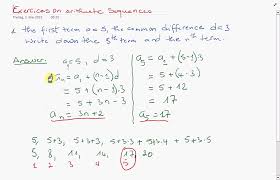 Exercises on arithmetic Sequences
the first term a = 5, the common difference d = 3
Write down the 5th term and the nth term.
Answer: a₁ = 5, d = 3
aₙ = a₁ + (n-1)·d
= 5 + (n-1)·3
= 5 + 3n - 3
aₙ = 3n + 2
a₅ = a₁ + (5-1)·d
= 5 + (4)·3
= 5 + 12
= 17
a₅ = 17
5, 5+3, 5+3+3, 5+3·3, 5+3·4, 5+3·5
5, 8, 11, 14, 17, 20
1 2 3 4 5